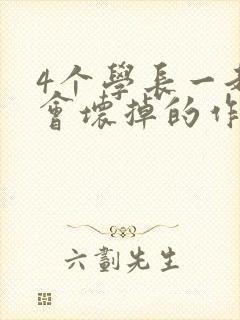 4个學長一
會壞掉的作
六劃先生